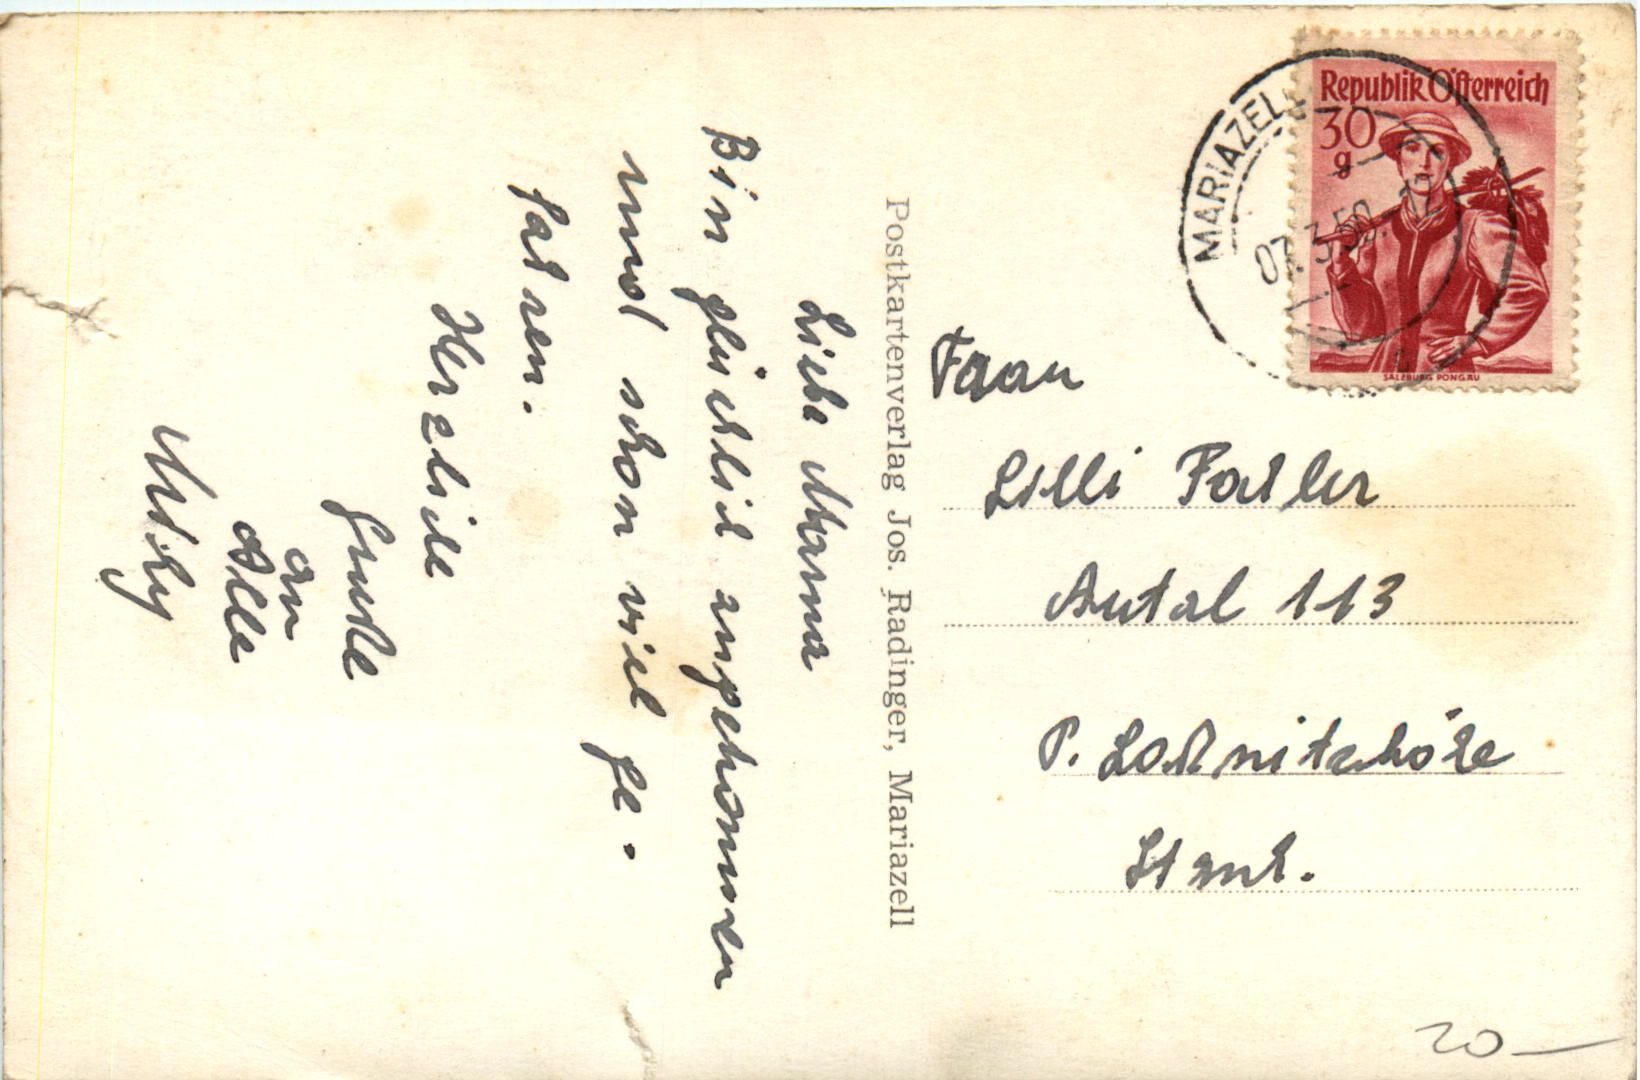 Liebe Mama
Bin glücklich angekommen
und schon viel ge-
fahren.
Herzliche
Grüße
an
Alle
Postkartenverlag Jos. Radinger, Mariazell
MARIAZELL
07.3.50.
Republik Österreich
30
g
SALZBURG PONGAU
Frau
Lilli
113
P. Laßnitzhöhe
Stmk.
20